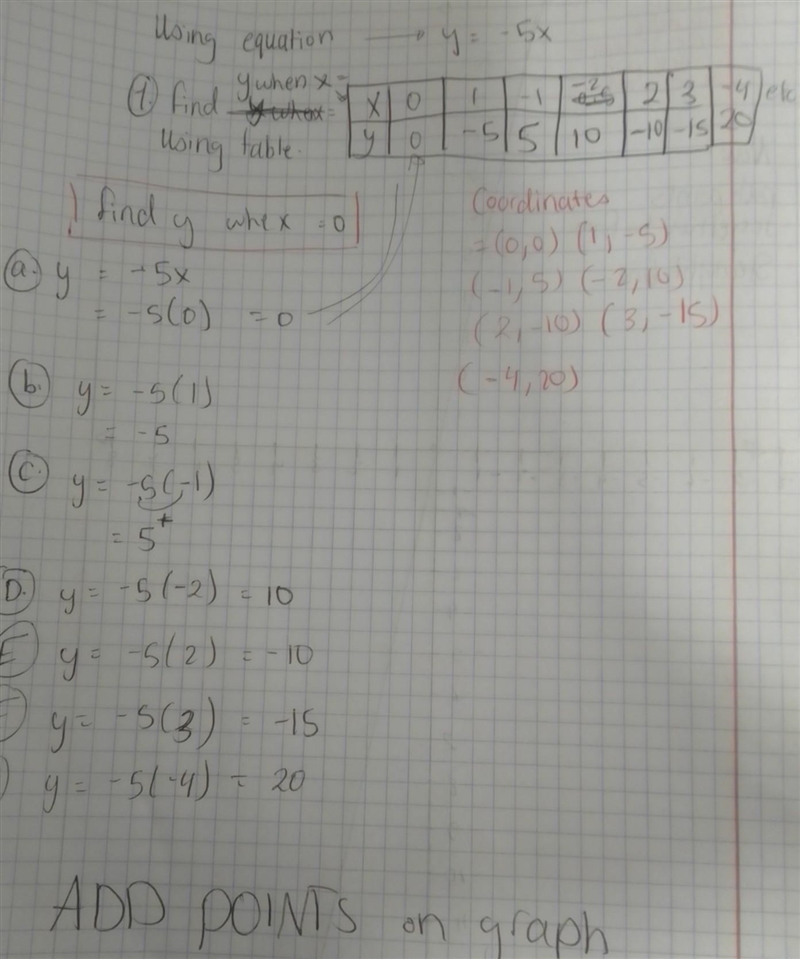 Using equation → y = -5x
1. find y when x =
Using table.
x 0 1 -1 -2 2 3 -4 etc
y 0 -5 5 10 -10 -15 20
find y whe x = 0
a. y = -5x
= -5(0) = 0
b. y = -5(1)
= -5
c. y = -5(-1)
= 5+
D. y = -5(-2) = 10
E y = -5(2) = -10
y = -5(3) = -15
y = -5(-4) = 20
Coordinates
= (0,0) (1, -5)
(-1, 5) (-2, 10)
(2, -10) (3, -15)
(-4, 20)
ADD POINTS on graph